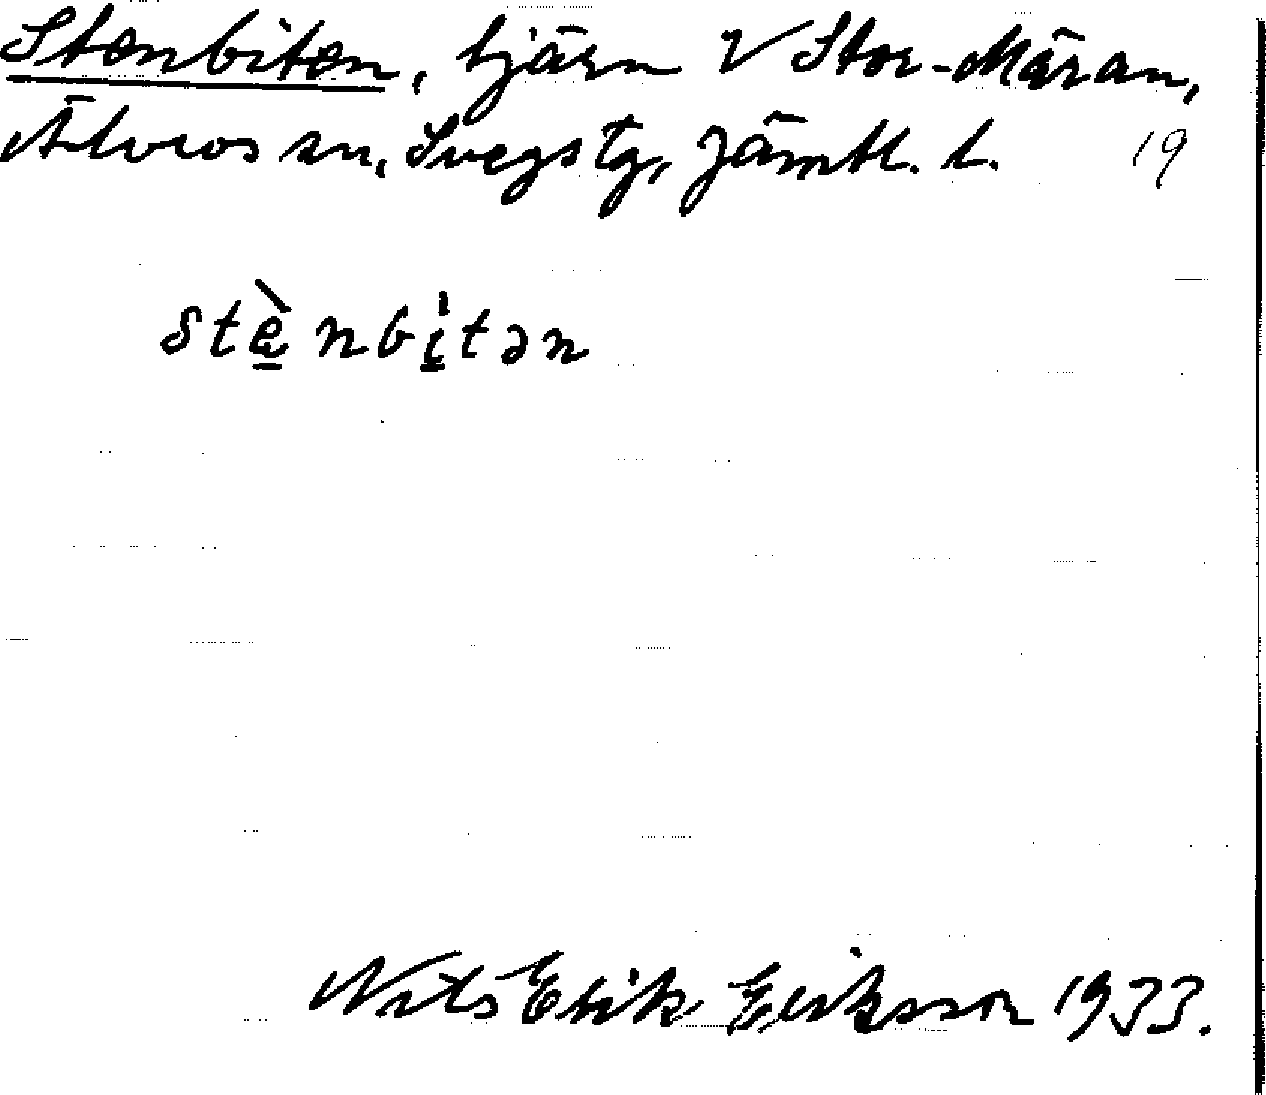 Stenbiten, tjärn V Stor-Märan,
Älvros sn, Svegs tg, Jämtl. l. 19
stènbi̠tən
Nils Erik Eriksson 1933.